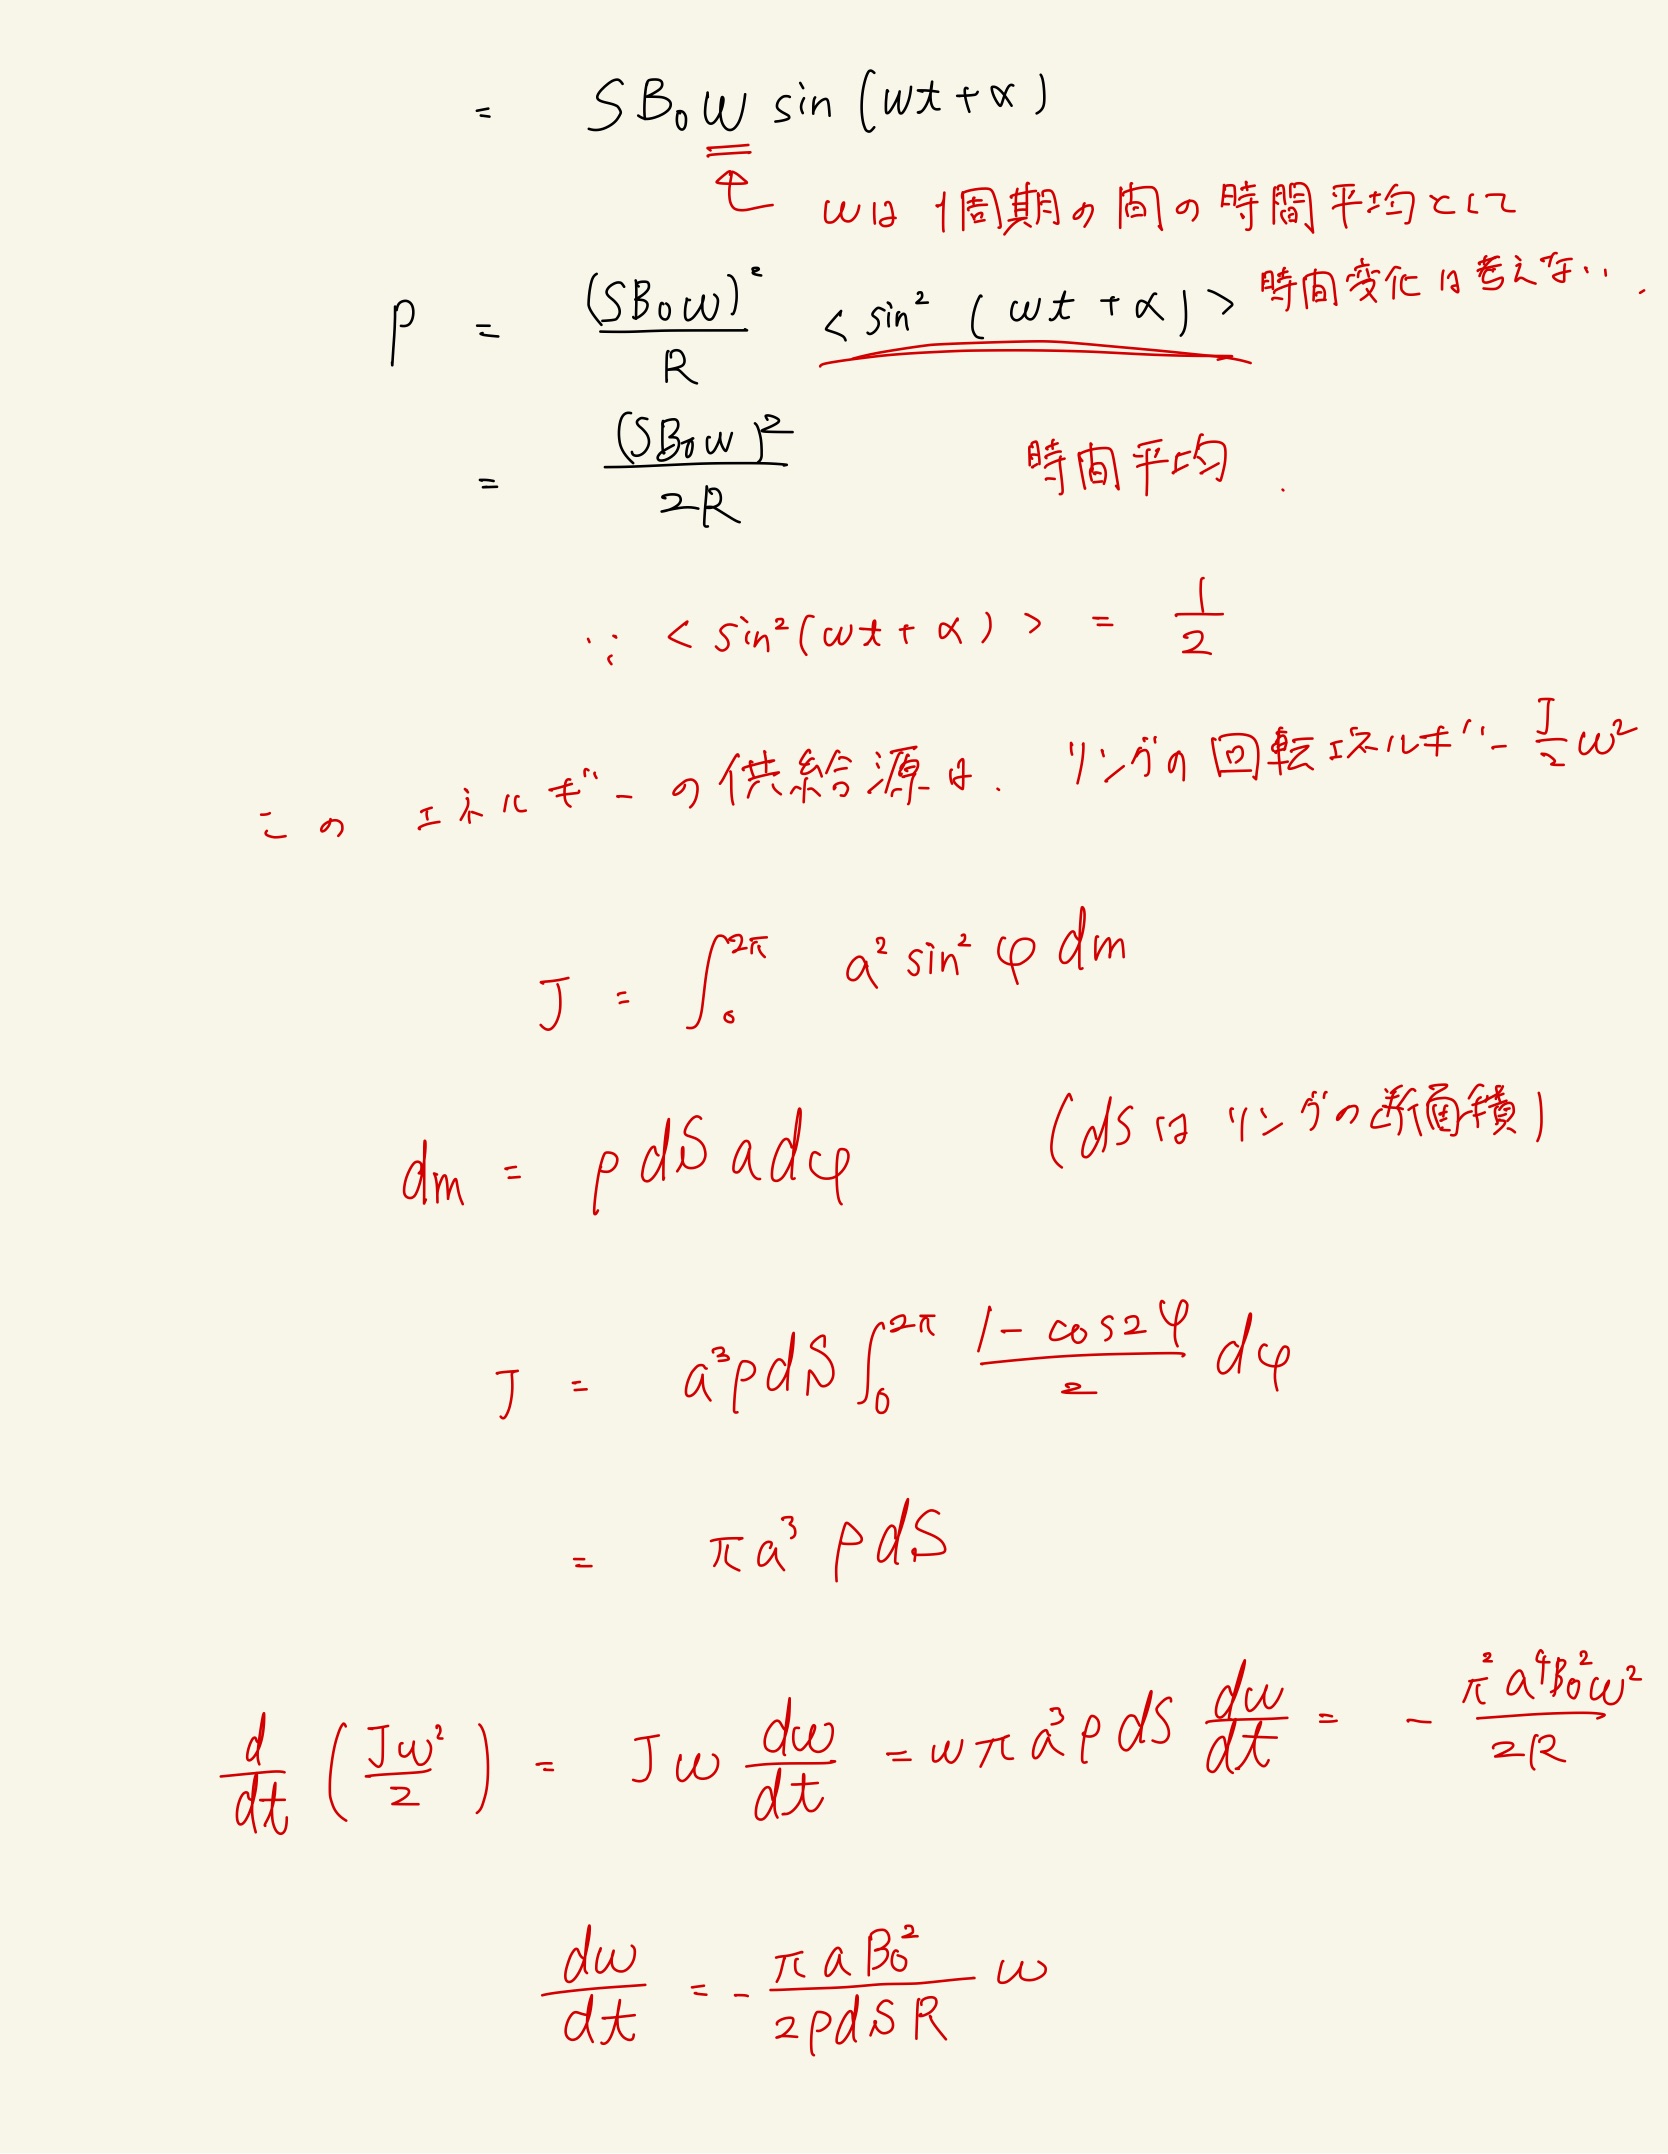 = SB₀ω sin(ωt+α)
ωは1周期の間の時間平均として
時間変化は考えない.
P = (SB₀ω)²/R <sin²(ωt+α)>
= (SB₀ω)²/2R
時間平均.
∵ <sin²(ωt+α)> = 1/2
このエネルギーの供給源は、リングの回転エネルギー J/2 ω²
J = ∫₀^2π a² sin²φ dm
dm = ρ dS a dφ (dSはリングの断面積)
J = a³ρdS ∫₀^2π (1-cos2φ)/2 dφ
= πa³ρdS
d/dt (Jω²/2) = Jω dω/dt = ωπa³ρdS dω/dt = - π²a⁴B₀²ω²/2R
dω/dt = - πaB₀²/2ρdSR ω